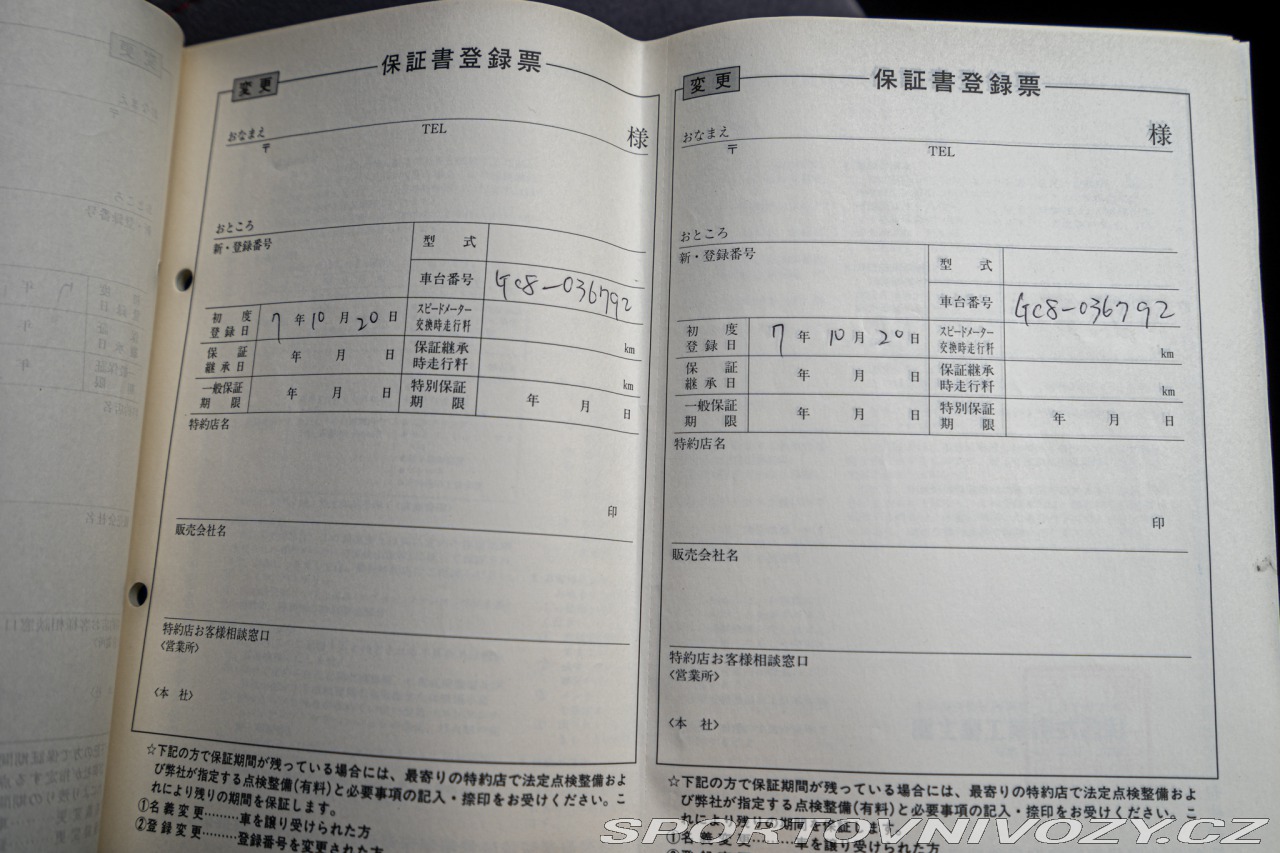 変更 保証書登録票
おなまえ TEL 様
〒
おところ
新・登録番号 型式
車台番号 GC8-036792
初度登録日 7年10月20日 スピードメーター交換時走行粁 km
保証継承日 年 月 日 保証継承時走行粁 km
一般保証期限 年 月 日 特別保証期限 年 月 日
特約店名
印
販売会社名
特約店お客様相談窓口
〈営業所〉
〈本社〉
☆下記の方で保証期間が残っている場合には、最寄りの特約店で法定点検整備およ
び弊社が指定する点検整備(有料)と必要事項の記入・捺印をお受けください。こ
れにより残りの期間を保証します。
①名義変更………車を譲り受けられた方
②登録変更………登録番号を変更された方
変更 保証書登録票
おなまえ 様
〒 TEL
おところ
新・登録番号 型式
車台番号 GC8-036792
初度登録日 7年10月20日 スピードメーター交換時走行粁 km
保証継承日 年 月 日 保証継承時走行粁 km
一般保証期限 年 月 日 特別保証期限 年 月 日
特約店名
印
販売会社名
特約店お客様相談窓口
〈営業所〉
〈本社〉
☆下記の方で保証期間が残っている場合には、最寄りの特約店で法定点検整備およ
び弊社が指定する点検整備(有料)と必要事項の記入・捺印をお受けください。こ
れにより残りの期間を保証します。
①名義変更………車を譲り受けられた方
SPORTOVNIVOZY.CZ